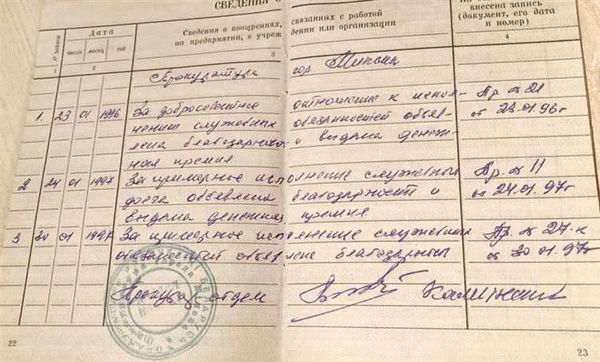 СВЕДЕНИЯ О
№ записи
Дата
число
месяц
год
Сведения о поощрениях, связанных с работой
на предприятии, в учреждении или организации
внесена запись
(документ, его дата
и номер)
1 2 3 4
Прокуратура гор. Минска
1. 23 01 1996 За добросовестное отношение к испол-
нению служебных обязанностей объяв-
лена благодарность и выдана денеж-
ная премия
Пр. № 21
от 23.01.96г
2 24 01 1997 За примерное исполнение служебного
долга объявлена благодарность и
выдана денежная премия
Пр. № 11
от 24.01.97г
3 30 01 1997 За примерное исполнение служебных
объявлена благодарность
Пр. № 27-к
от 30.01.97г
отдела
22
23